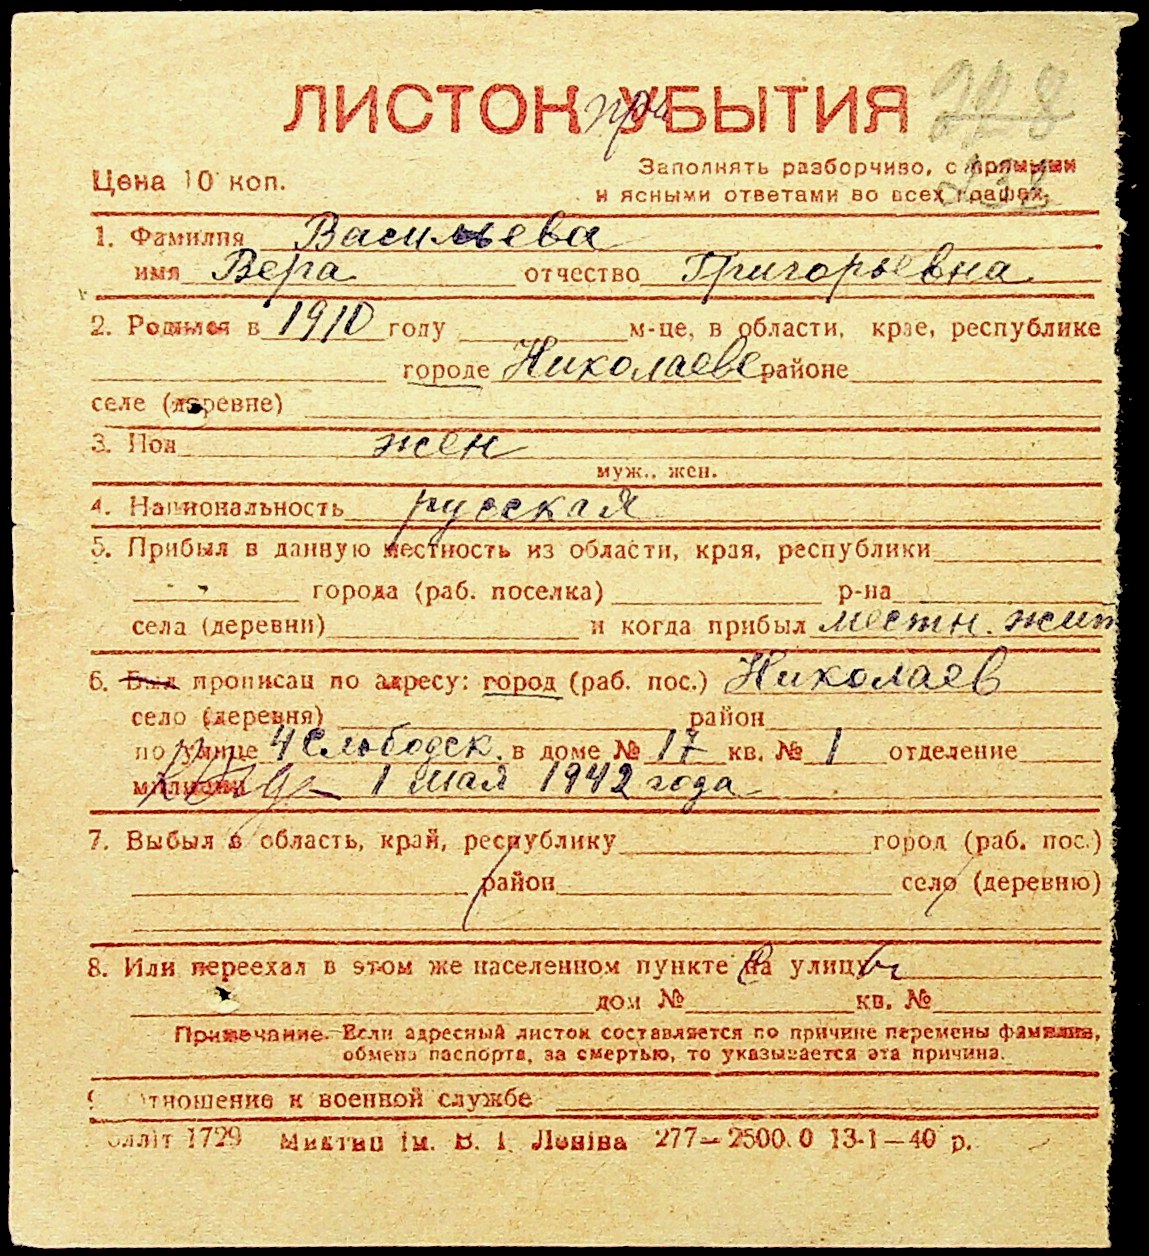 ЛИСТОК УБЫТИЯ
при
228
Цена 10 коп.
Заполнять разборчиво, с прямыми
и ясными ответами во всех графах.
1. Фамилия Васильева
имя Вера отчество Григорьевна
2. Родился в 1910 году м-це, в области, крае, республике
городе Николаеве районе
селе (деревне)
3. Пол жен
муж., жен.
4. Национальность русская
5. Прибыл в данную местность из области, края, республики
города (раб. поселка) р-на
села (деревни) и когда прибыл местн. жит
6. Был прописан по адресу: город (раб. пос.) Николаев
село (деревня) район
по улице 4 Слободск. в доме № 17 кв. № 1 отделение
милиции 1 мая 1942 года
7. Выбыл в область, край, республику город (раб. пос.)
район село (деревню)
8. Или переехал в этом же населенном пункте на улицу
дом № кв. №
Примечание. Если адресный листок составляется по причине перемены фамилии,
обмена паспорта, за смертью, то указывается эта причина.
9. Отношение к военной службе
1729 ім. В. І. Леніна 277—2500.0 13-1—40 р.